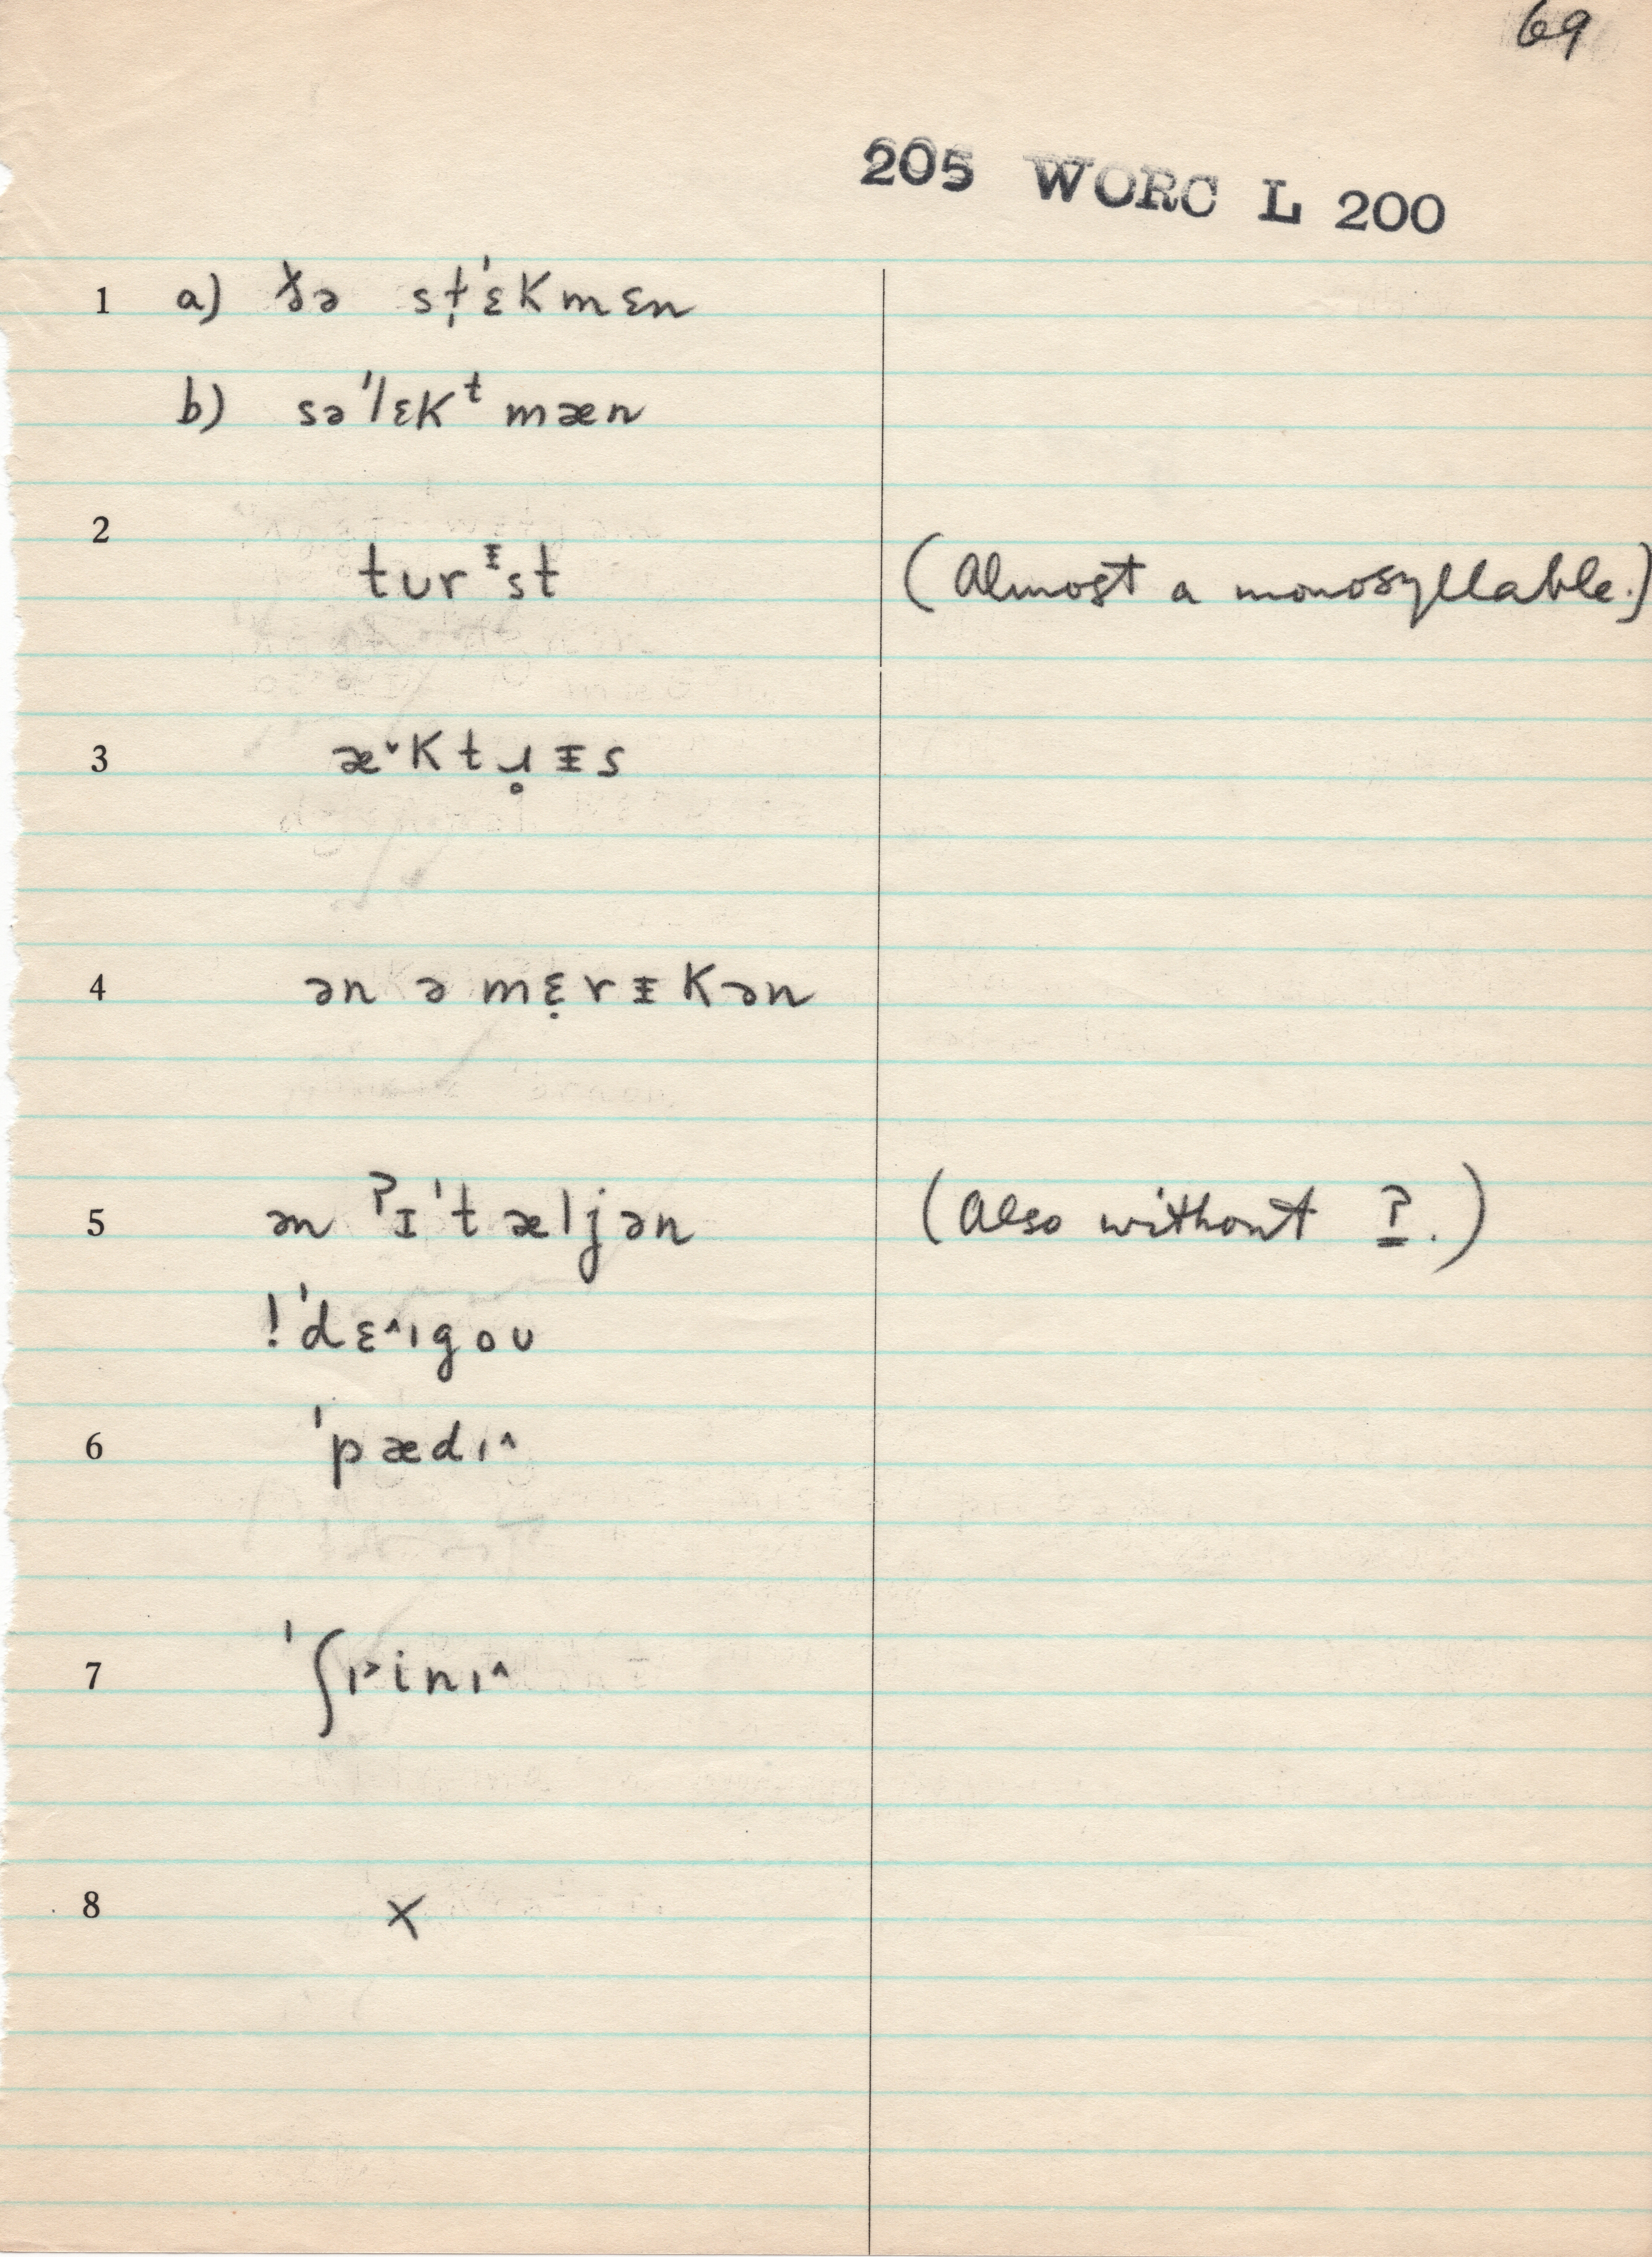 69
205 WORC L 200
1 a) ðə st̩ˈɛkmɛn
b) səˈlɛkᵗmæn
2
tʊrᵻst (Almost a monosyllable.)
3 æ˅ktɹ̥ᵻs
4 ən əmɛ̣rᵻkən
5 ən ˀɪˈtæljən (Also without ʔ.)
!ˈdɛ˄ɪgoʊ
6 ˈpædɪ˄
7 ˈʃɪ˃inɪ˄
8 x